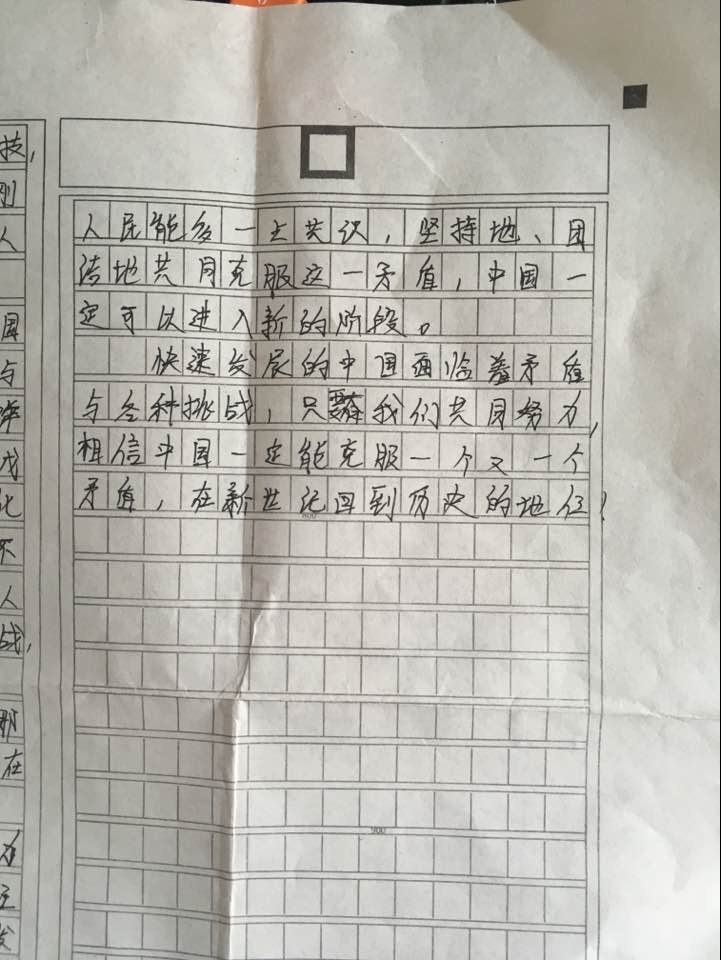 技,
刚
人
国
与
战
化
不
人
战,
那
在
为
主
发
人民能多一些共识，坚持地、团
结地共同克服这一矛盾，中国一
定可以进入新的阶段。
快速发展的中国面临着矛盾
与各种挑战，只要我们共同努力,
相信中国一定能克服一个又一个
矛盾，在新世纪回到历史的地位！
800
900